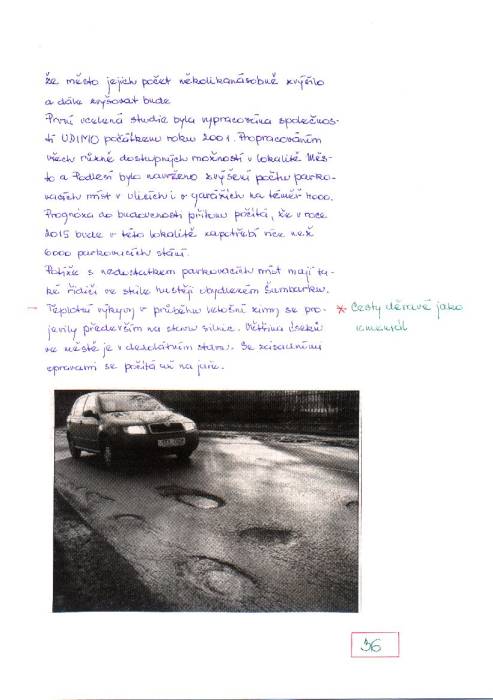 že město jejich počet několikanásobně zvýšilo
a dále zvyšovat bude
První ucelená studie byla vypracována společnos-
tí UDIMO počátkem roku 2001. Propracováním
všech různě dostupných možností v lokalitě Měs-
to a Podlesí bylo navrženo zvýšení počtu parko-
vacích míst v ulicích i v garážích na téměř 4000.
Prognóza do budoucnosti přitom počítá, že v roce
2015 bude v této lokalitě zapotřebí více než
6000 parkovacích stání.
Potíže s nedostatkem parkovacích míst mají ta-
ké řidiči ve stále hustěji obydleném Šumbarku.
– Teplotní výkyvy v průběhu letošní zimy se pro- * Cesty děravé jako
jevily především na stavu silnic. Většina úseků ementál
ve městě je v desolátním stavu. Se zásadními
opravami se počítá už na jaře.
36